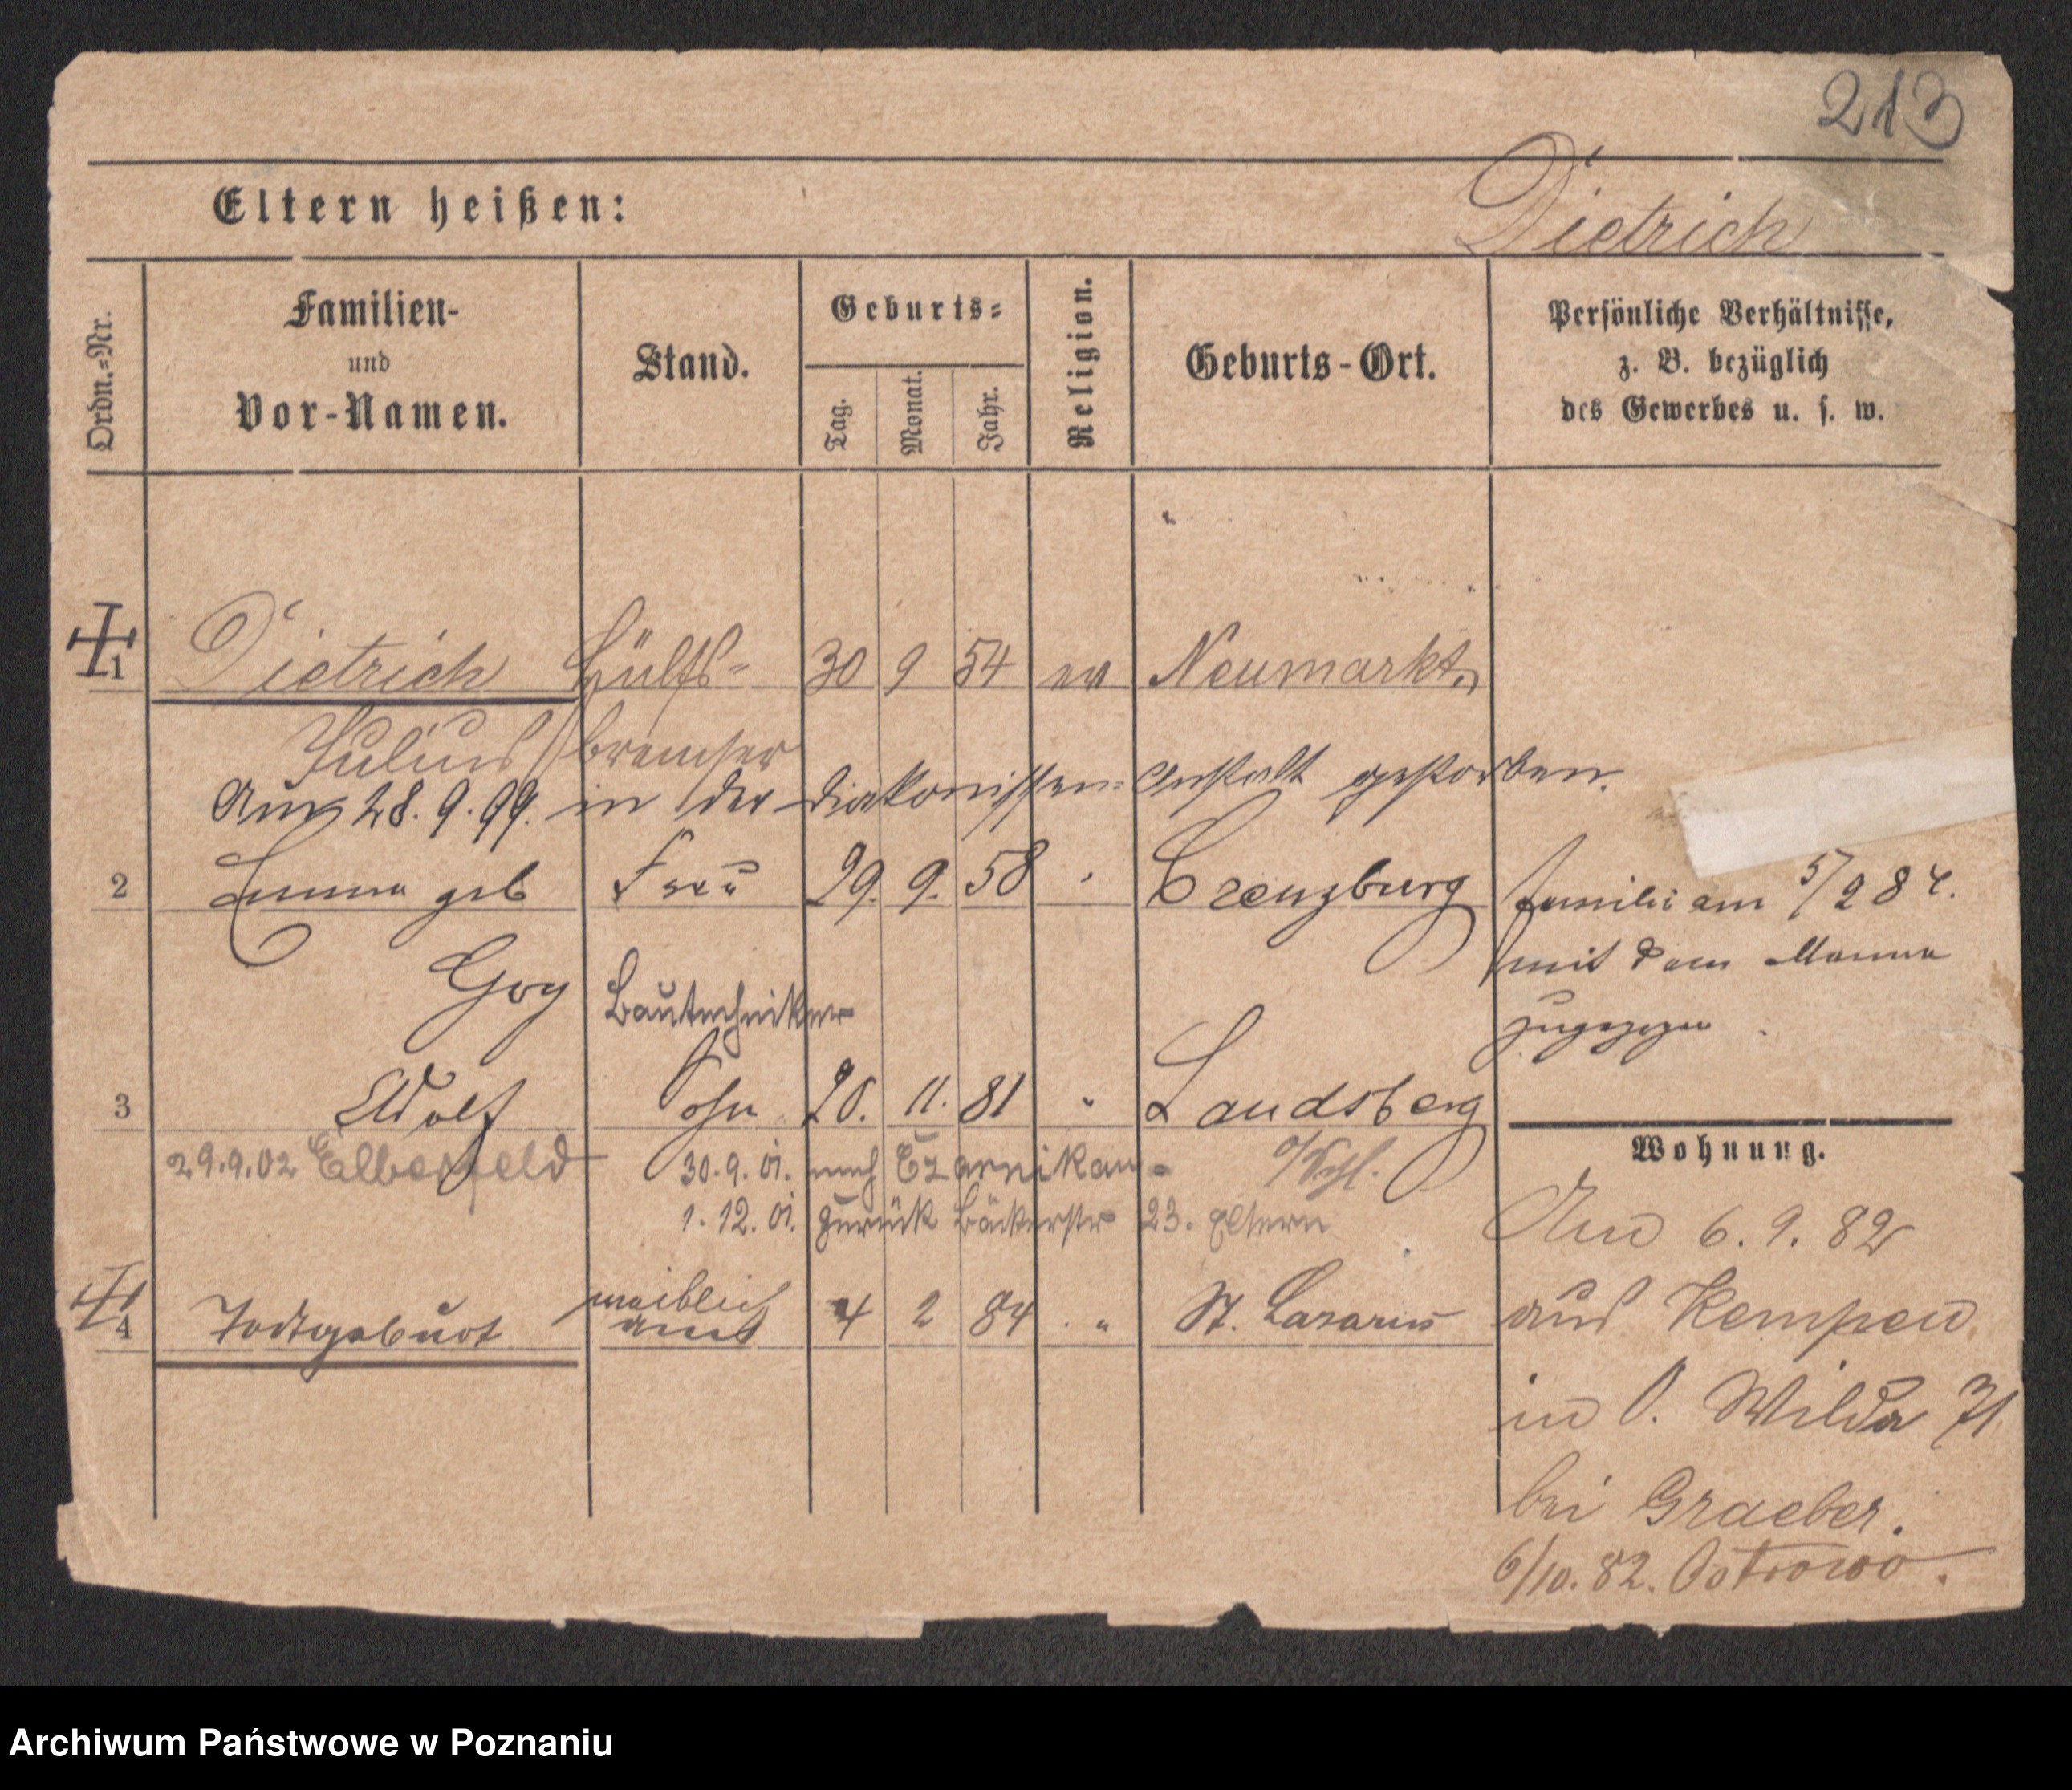 213
Eltern heißen: Dietrich
Ordn.=Nr.
Familien-
und
Vor-Namen.
Stand.
Geburts=
Tag.
Monat.
Jahr.
Religion.
Geburts-Ort.
Persönliche Verhältnisse,
z. B. bezüglich
des Gewerbes u. s. w.
1 Dietrich Hülfs= 30 9 54 ev Neumarkt
Julius bremser
Am 28.9.99. in der Diakonissen=Anstalt gestorben.
2 Emma geb Frau 29. 9. 58 " Creuzburg
Goy
Familie am 5/9 82.
mit dem Manne
zugezogen
Bautechniker
3 Adolf Sohn 20. 11. 81 " Landsberg
29.9.02 Elberfeld 30.9.01. nach Czarnikau
1.12.01. zurück Bäckerstr 23. Eltern
4 Todtgeburt weiblich 4 2 84 " St. Lazarus
Wohnung.
6. 9. 82
aus Kempen
in O. Wilda 71
bei Graeber.
6/10. 82. Ostrowo.
Archiwum Państwowe w Poznaniu